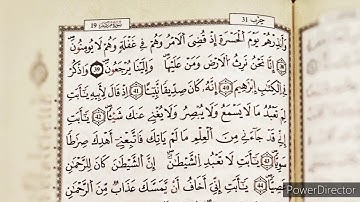 حزب 31
سورة مريم 19
وَأَنذِرْهُمْ يَوْمَ اَ۬لْحَسْرَةِ إِذْ قُضِيَ اَ۬لَامْرُ وَهُمْ فِي غَفْلَةٖ وَهُمْ لَا يُومِنُونَۖ
38 إِنَّا نَحْنُ نَرِثُ اُ۬لَارْضَ وَمَنْ عَلَيْهَا وَإِلَيْنَا يُرْجَعُونَۖ 39 وَاذْكُرْ
فِي اِ۬لْكِتَٰبِ إِبْرَٰهِيمَ 40 إِنَّهُۥ كَانَ صِدِّيقاٗ نَّبِيٓـٔاً 41 اِذْ قَالَ لِأَبِيهِ يَٰٓأَبَتِ
لِمَ تَعْبُدُ مَا لَا يَسْمَعُ وَلَا يُبْصِرُ وَلَا يُغْنِي عَنكَ شَيْـٔاٗۖ 42 يَٰٓأَبَتِ
إِنِّي قَدْ جَآءَنِي مِنَ اَ۬لْعِلْمِ مَا لَمْ يَاتِكَ فَاتَّبِعْنِيٓ أَهْدِكَ صِرَٰطاٗ
سَوِيّاٗۖ 43 يَٰٓأَبَتِ لَا تَعْبُدِ اِ۬لشَّيْطَٰنَۖ إِنَّ اَ۬لشَّيْطَٰنَ كَانَ لِلرَّحْمَٰنِ
عَصِيّاٗۖ 44 يَٰٓأَبَتِ إِنِّيَ أَخَافُ أَنْ يَّمَسَّكَ عَذَابٞ مِّنَ اَ۬لرَّحْمَٰنِ
PowerDirector